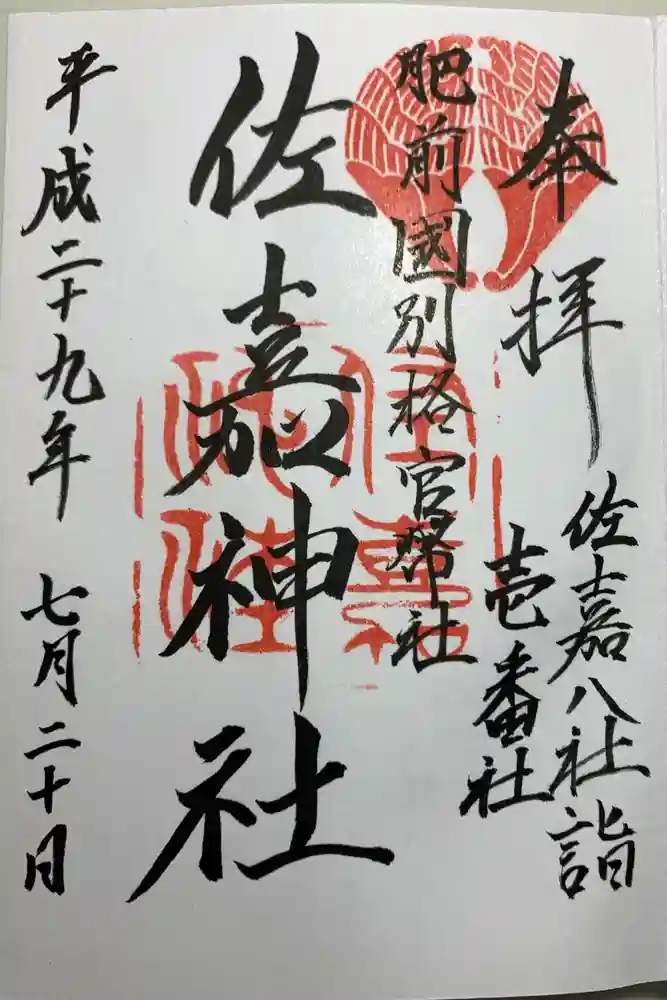 奉拝
佐嘉八社詣
壱番社
肥前國別格官幣社
佐嘉神社
平成二十九年 七月二十日
佐嘉神社